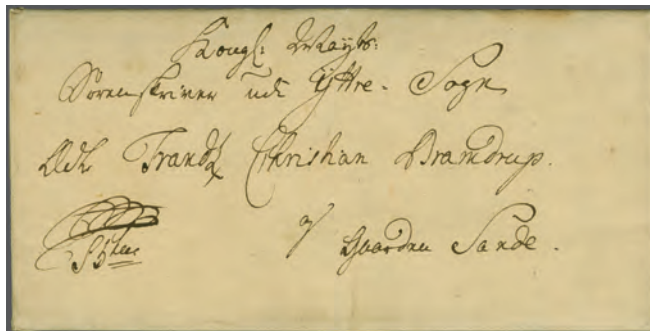 Kongl: Mayts:
Sorenskriver udi Ÿttre - Sogn
Frandtz Christian Bramdrup.
Gaarden Sande.